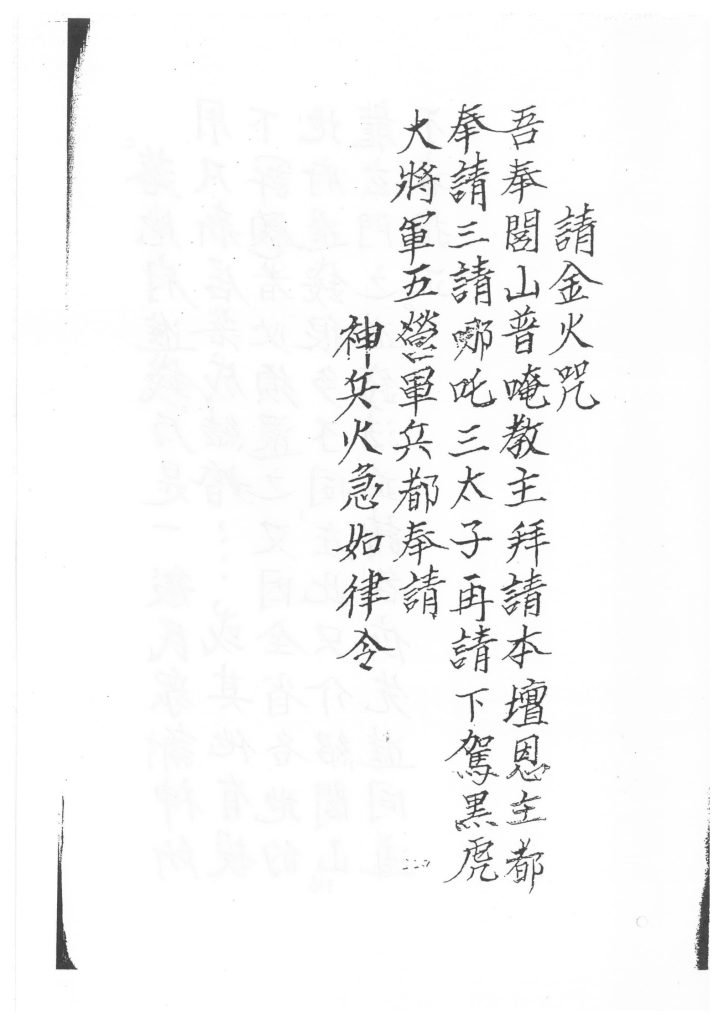 請金火咒
吾奉閭山普唵教主拜請本壇恩主都
奉請三請哪吒三太子再請下駕黑虎
大將軍五營軍兵都奉請
神兵火急如律令